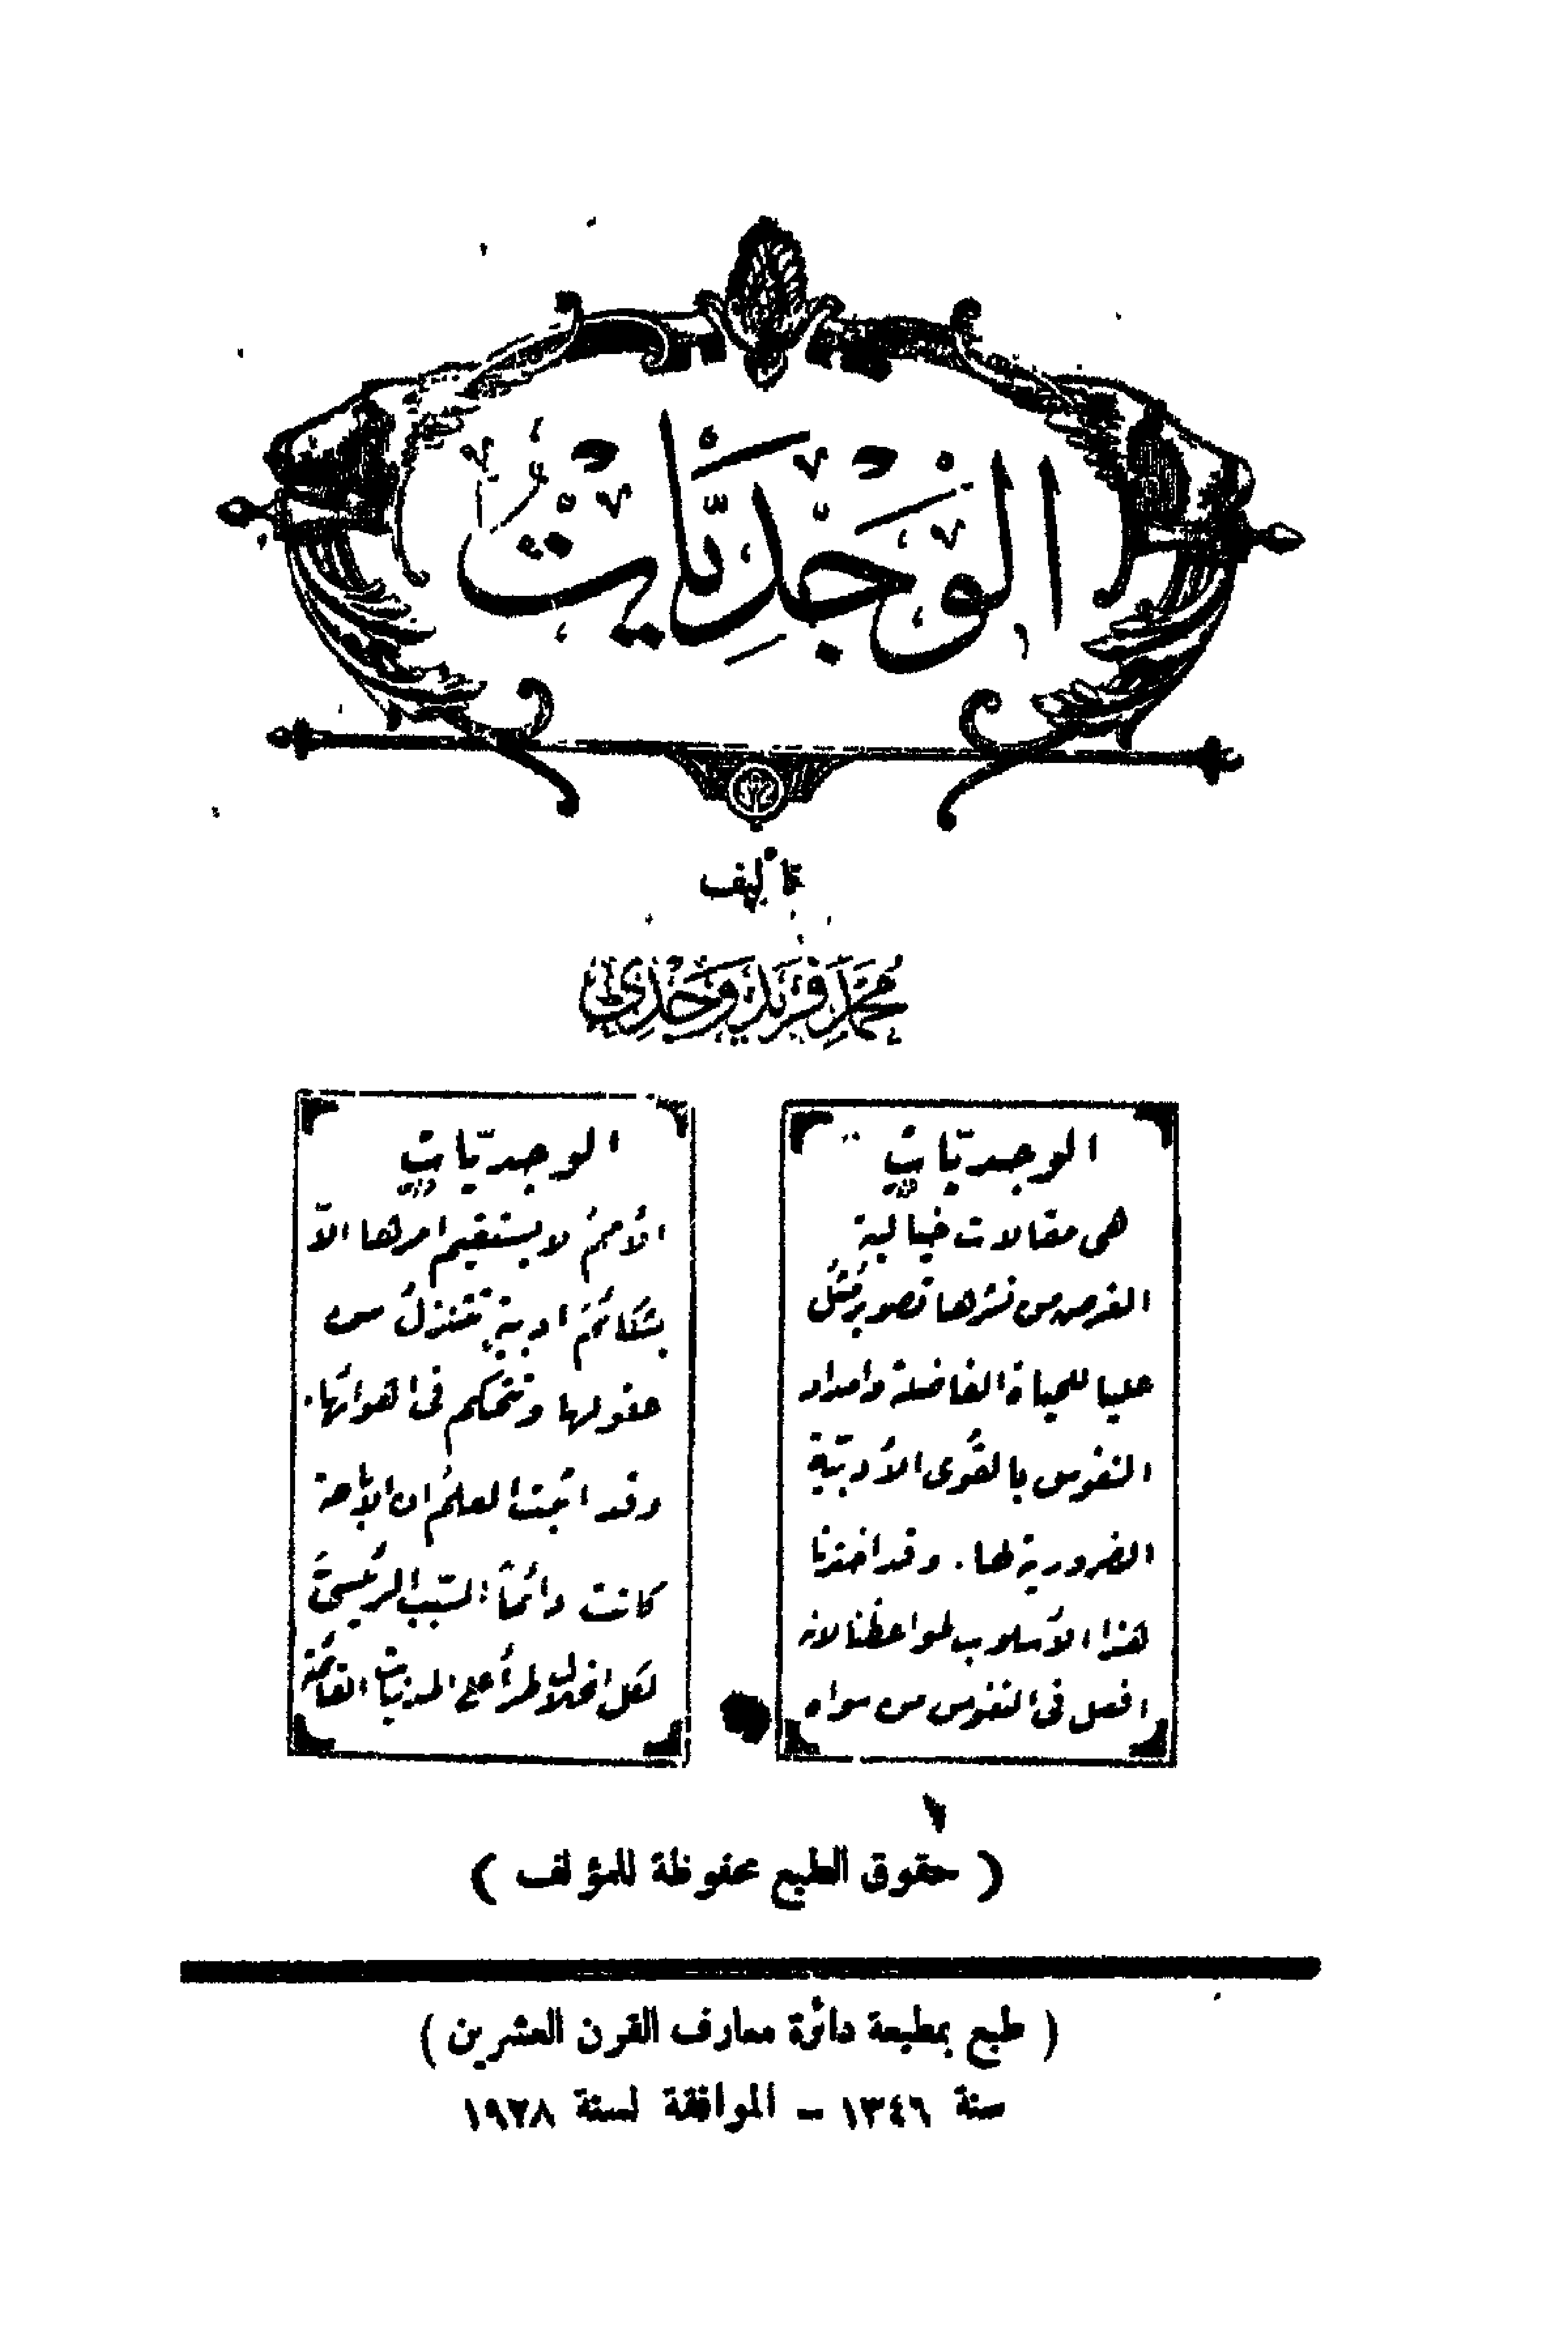 الوَجْدِيَّاتْ
تأليف
محمد فريد وجدي
الوجديّات
هى مقالات خيالية
الغرض من نشرها تصوير مُثُل
عليا للحياة الفاضلة وامداد
النفوس بالقُوى الأدبيّة
الضرورية لها . وقد اخترنا
هذا الأسلوب لمواعظنا لانه
افعل فى النفوس من سواه
الوجديّات
الأممُ لا يستقيم امرها الاّ
بشكائم ادبية تتنزل من
عقولها وتتحكم فى اهوائها .
وقد اثبت العلمُ ان الاباحة
كانت دائماً السّبب الرئيسىَّ
لكل انحلال طرأ على المدنيات القائمة
( حقوق الطبع محفوظة للمؤلف )
( طبع بمطبعة دائرة معارف القرن العشرين )
سنة ١٣٤٦ - الموافقة لسنة ١٩٢٨